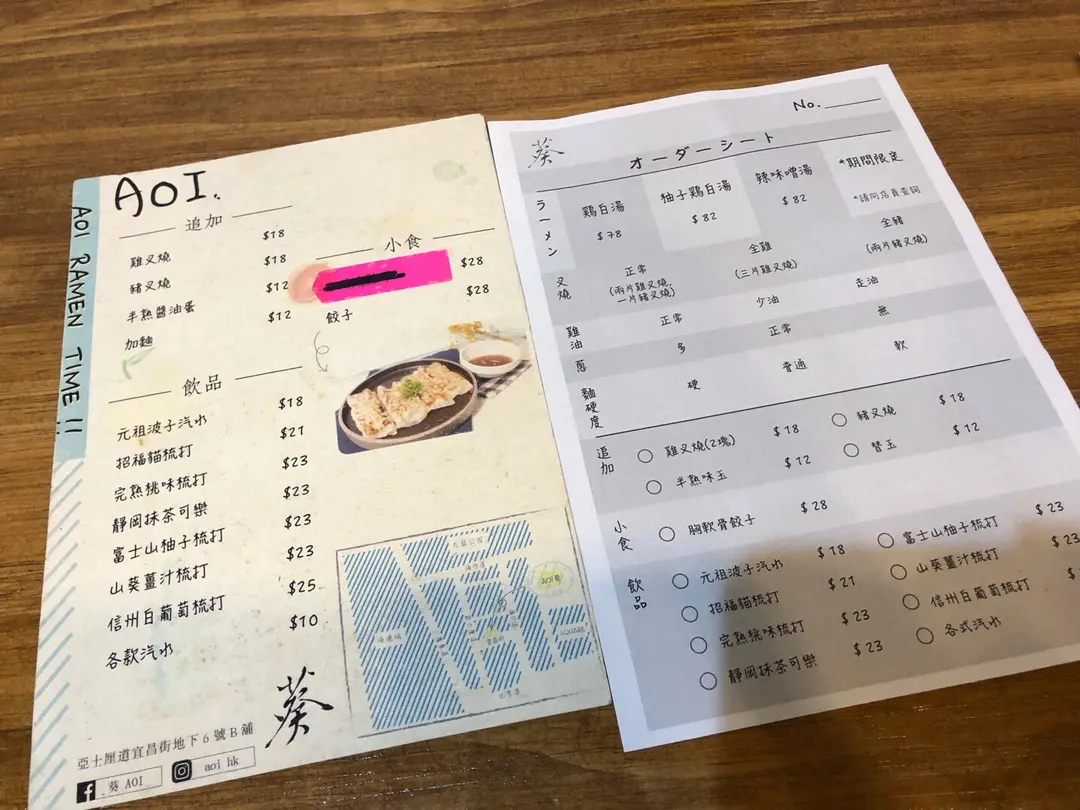 AOI RAMEN TIME !!
AOI.
追加
雞叉燒 $18
豬叉燒 $18
半熟醬油蛋 $12
加麵 $12
小食
$28
餃子 $28
飲品
元祖波子汽水 $18
招福貓梳打 $21
完熟桃味梳打 $23
靜岡抹茶可樂 $23
富士山柚子梳打 $23
山葵薑汁梳打 $23
信州白葡萄梳打 $25
各款汽水 $10
AOI葵
葵
亞士厘道宜昌街地下6號B舖
葵 AOI
aoi hk
No.
葵
オーダーシート
ラーメン
鶏白湯 $78
柚子鶏白湯 $82
辣味噌湯 $82
*期間限定
*請向店員查詢
叉燒
正常
(兩片雞叉燒,
一片豬叉燒)
全雞
(三片雞叉燒)
全豬
(兩片豬叉燒)
雞油 正常 少油 走油
蔥 多 正常 無
麵硬度 硬 普通 軟
追加
雞叉燒(2塊) $18 豬叉燒 $18
半熟味玉 $12 替玉 $12
小食
胸軟骨餃子 $28
飲品
元祖波子汽水 $18 富士山柚子梳打 $23
招福貓梳打 $21 山葵薑汁梳打 $23
完熟桃味梳打 $23 信州白葡萄梳打 $
靜岡抹茶可樂 $23 各式汽水